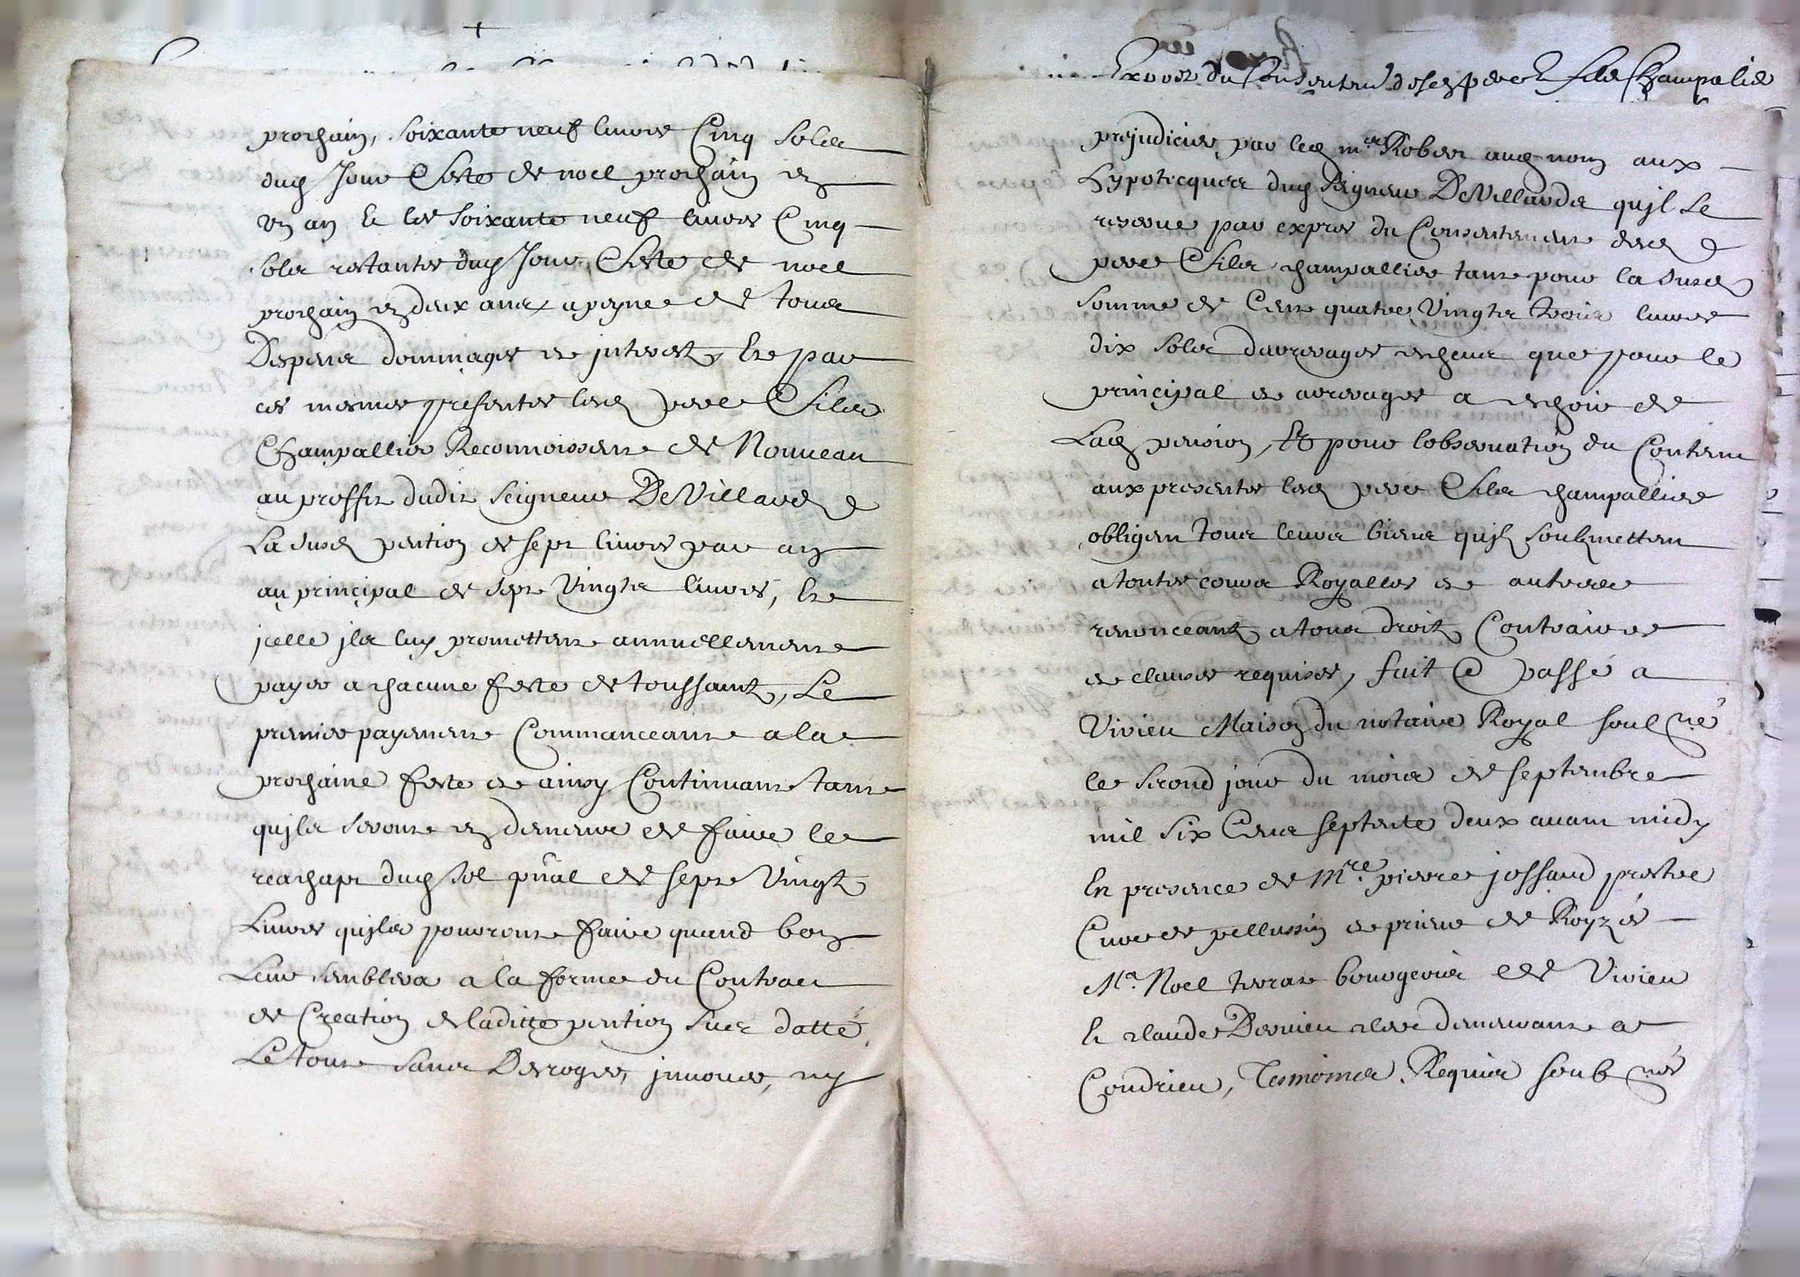 prochain, soixante neuf livres Cinq solz
dud Jour & feste de noel prochain en
un an Et les soixante neuf livres Cinq
solz restantes dud Jour & feste de noel
prochain en deux ans a peyne de tous
Despens dommages et jnterest, Et par
ces mesmes presentes lesd pere & filz
Champallier Reconnoissent de Nouveau
au proffit dudit seigneur De Villard
La susd pention de sept livres par an
au principal de sept Vingtz livres, Et
jcelle jlz luy promettent annuellement
payer a chacune feste de toussaintz, Le
premier payement Commanceant a la
prochaine feste et ainsy Continuant tant
qujlz seront en demeure de faire le
reachapt dud sol pnal de sept Vingtz
Livres qujlz pourront faire quand bon
Leur semblera a la forme du Contract
de Creation de laditte pention sus datté
Le tout sans Desroger, jnnover, ny
Expres du Consentem desd pere & filz Champalier
prejudicier par led mre Rober aud nom aux
hypotecques dud seigneur De Villardz qujl se
reserve par expres du Consentement desd
pere & filz champallier tant pour la susd
somme de Cent quatre Vingtz trois livres
dix solz darrerages escheus que pour le
principal et arrerages a eschoir de
Lad pension, Et pour lobservation du Contenu
aux presentes lesd pere & filz champallier
obligent tous leurs biens qujlz soubzmettent
a toutes cours Royalles et autres
renonceantz a tous droitz Contraires
et clauses requises, fait & passé a
Virieu Maison du notaire Royal soubzné
le second jour du mois de septembre
mil six Cens septente deux avant midy
En presence de Mre pierre jossaud prestre
Curé de pellussin et prieur de Royzé
Mr. Noel terrat bourgeois de Virieu
Et claude Dervieu clerc demeurant a
Condrieu, Tesmoins Requis soubznés